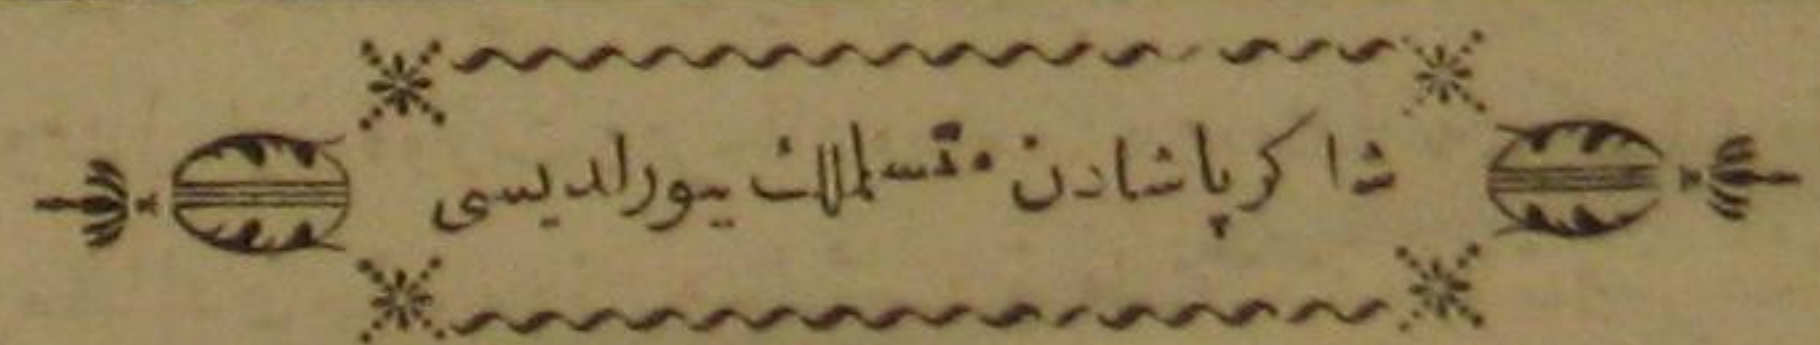 شاكر پاشادن متسلملك بيورلديسى